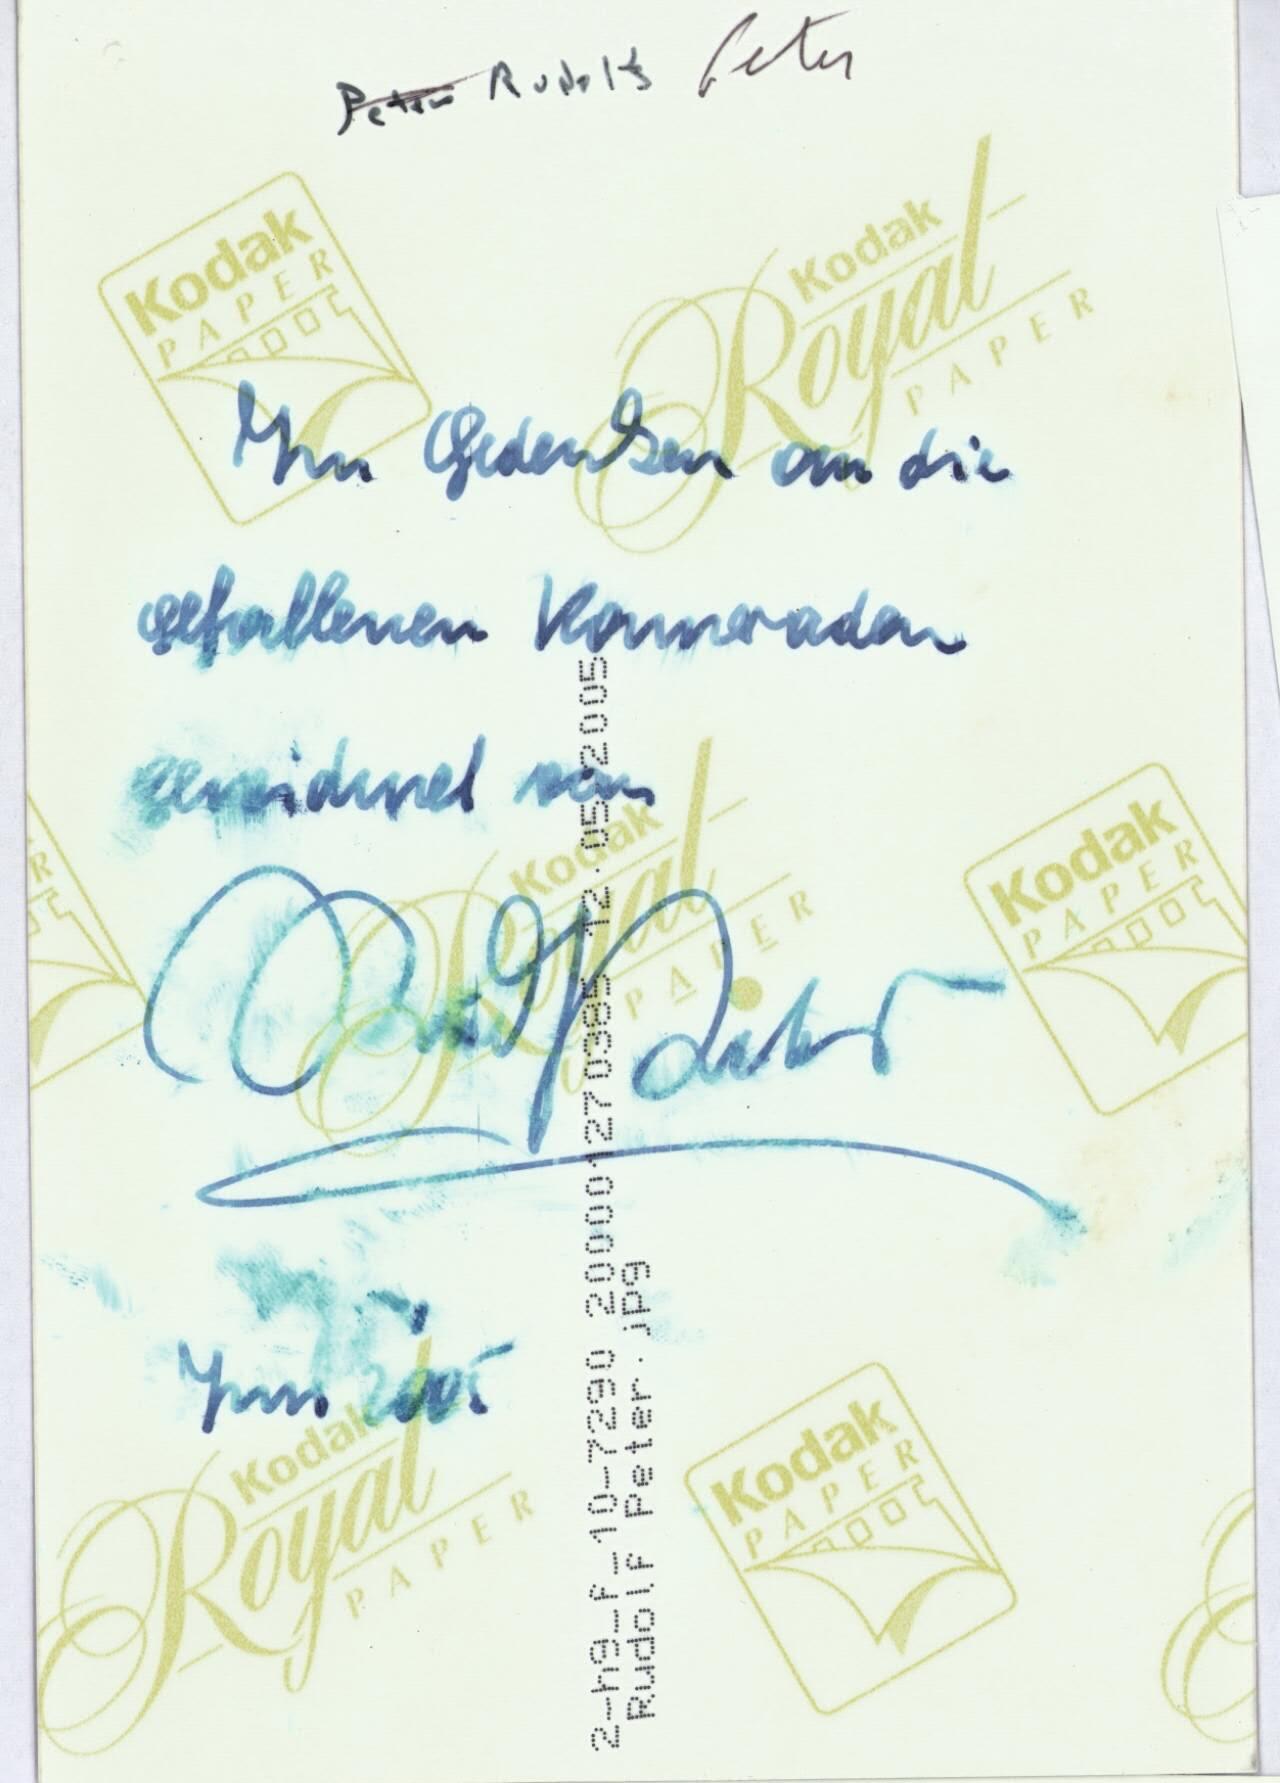 Peter Rudolf Peter
Kodak
PAPER
Kodak
Royal
PAPER
Im Gedenken an die
gefallenen Kameraden
gewidmet von
Kodak
Royal
PAPER
Kodak
PAPER
R
Juni 2005
Kodak
Royal
PAPER
Kodak
PAPER
2-hg_f-10-7290 200001270385 12.05.2005
Rudolf Peter.jpg